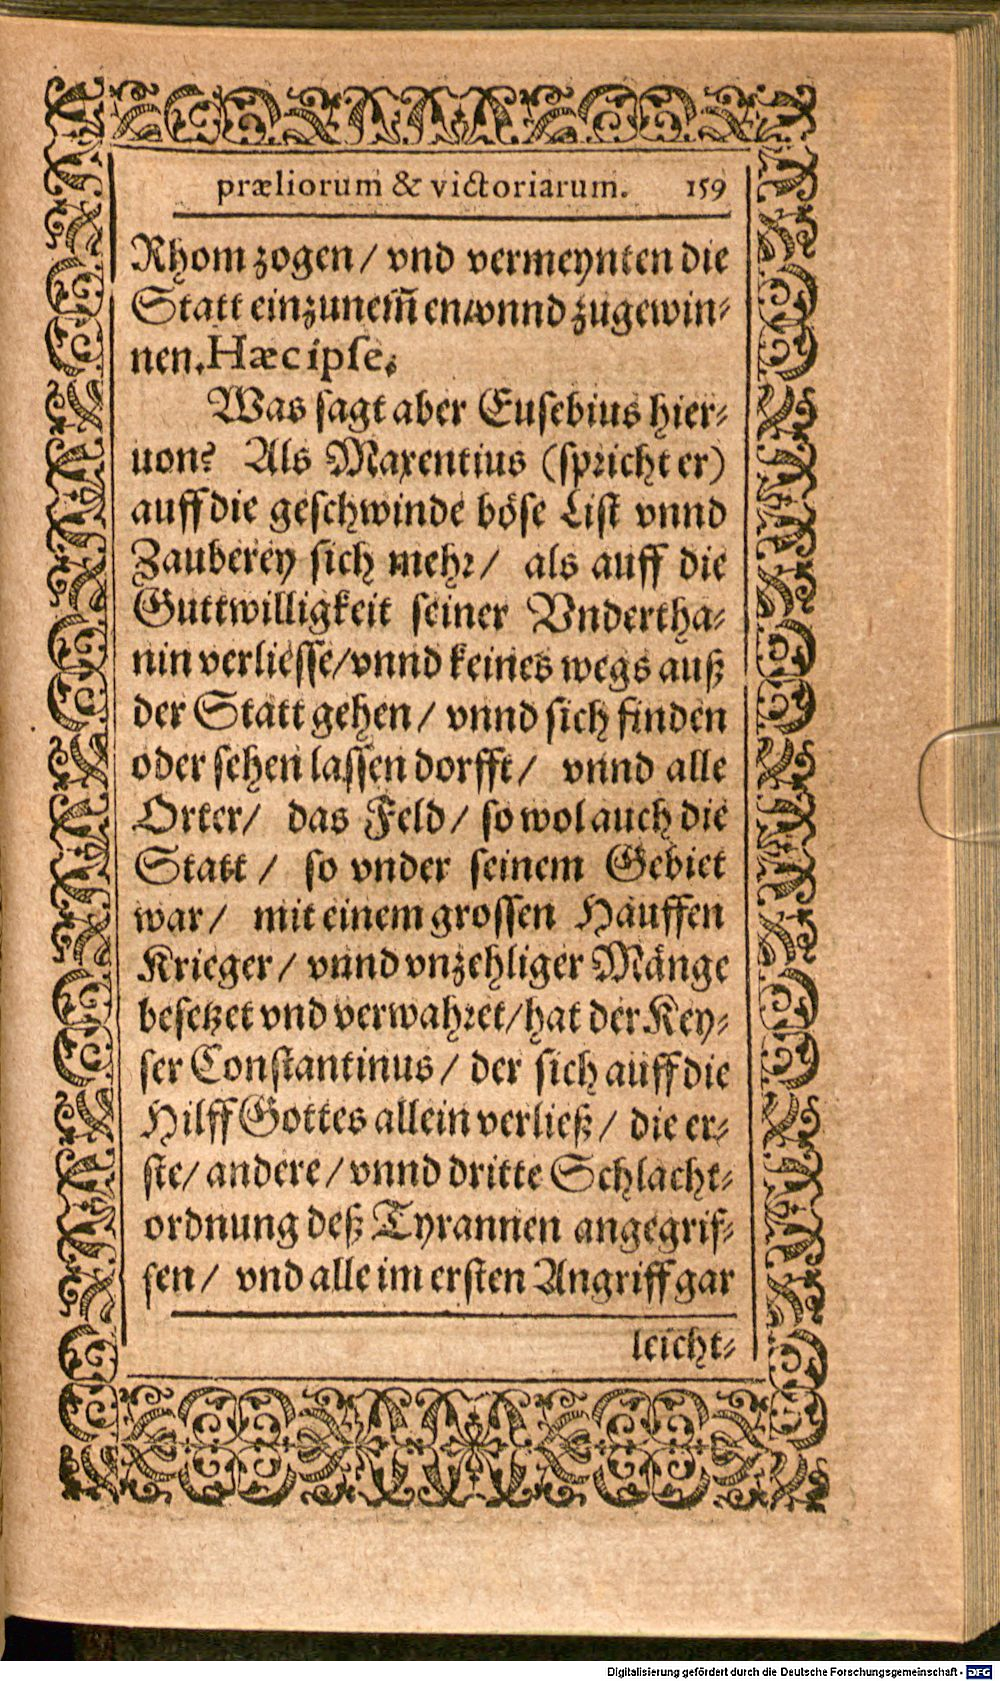 præliorum & victoriarum. 159
Rhom zogen / vnd vermeynten die
Statt einzunem̃en/vnnd zugewin-
nen. Hæc ipse.
Was sagt aber Eusebius hier-
uon? Als Maxentius (spricht er)
auff die geschwinde böse List vnnd
Zauberey sich mehr / als auff die
Guttwilligkeit seiner Vndertha-
nin verliesse/vnnd keines wegs auß
der Statt gehen / vnnd sich finden
oder sehen lassen dorfft / vnnd alle
Orter / das Feld / so wol auch die
Statt / so vnder seinem Gebiet
war / mit einem grossen Hauffen
Krieger / vnnd vnzehliger Mänge
besetzet vnd verwahret/hat der Key-
ser Constantinus / der sich auff die
Hilff Gottes allein verließ / die er-
ste / andere / vnnd dritte Schlacht-
ordnung deß Tyrannen angegrif-
fen / vnd alle im ersten Angriff gar
leicht-
Digitalisierung gefördert durch die Deutsche Forschungsgemeinschaft - DFG